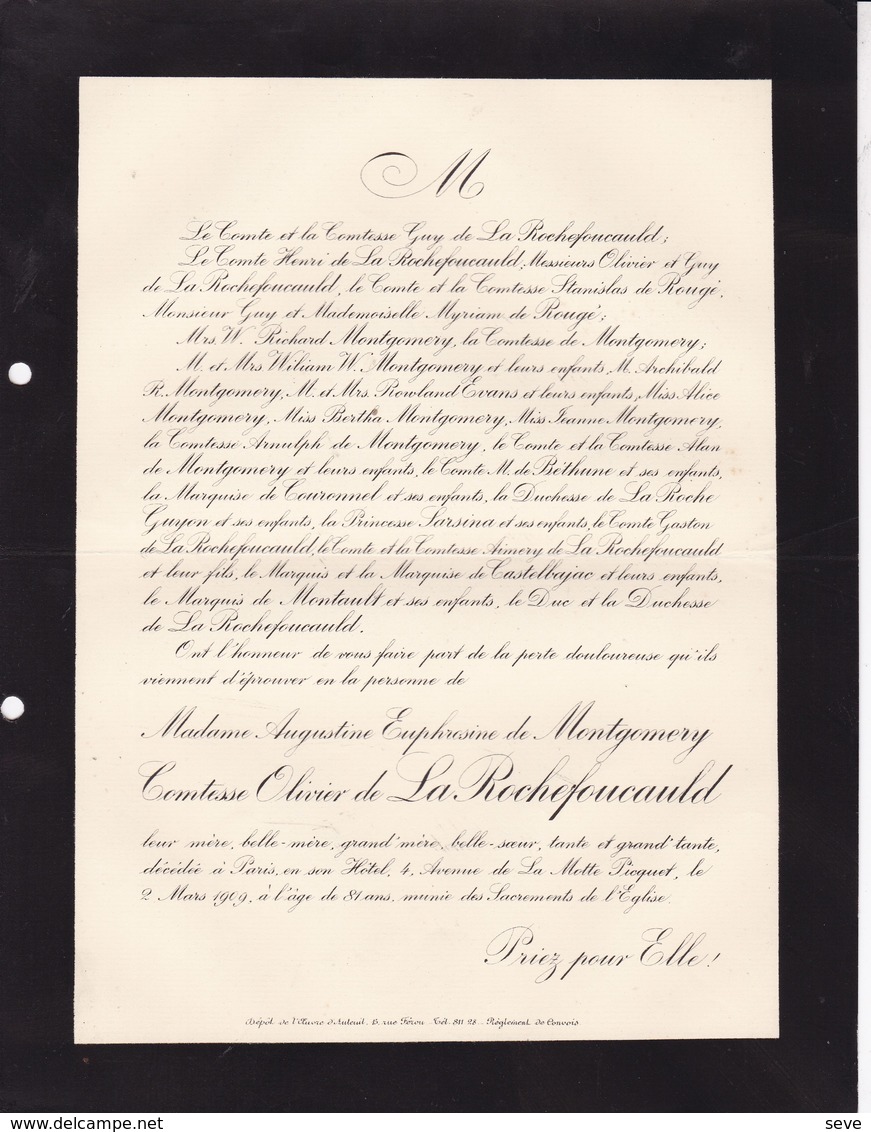 M
Le Comte et la Comtesse Guy de La Rochefoucauld;
Le Comte Henri de La Rochefoucauld, Messieurs Olivier et Guy
de La Rochefoucauld, le Comte et la Comtesse Stanislas de Rougé,
Monsieur Guy et Mademoiselle Myriam de Rougé;
Mrs. W. Richard Montgomery, la Comtesse de Montgomery;
M. et Mrs. Wiliam W. Montgomery et leurs enfants, M. Archibald
R. Montgomery, M. et Mrs. Rowland Evans et leurs enfants, Miss Alice
Montgomery, Miss Bertha Montgomery, Miss Jeanne Montgomery,
la Comtesse Arnulph de Montgomery, le Comte et la Comtesse Alan
de Montgomery et leurs enfants, le Comte M. de Béthune et ses enfants,
la Marquise de Couronnel et ses enfants, la Duchesse de La Roche
Guyon et ses enfants, la Princesse Sarsina et ses enfants, le Comte Gaston
de La Rochefoucauld, le Comte et la Comtesse Aimery de La Rochefoucauld
et leur fils, le Marquis et la Marquise de Castelbajac et leurs enfants,
le Marquis de Montault et ses enfants, le Duc et la Duchesse
de La Rochefoucauld.
Ont l'honneur de vous faire part de la perte douloureuse qu'ils
viennent d'éprouver en la personne de
Madame Augustine Euphrosine de Montgomery
Comtesse Olivier de La Rochefoucauld
leur mère, belle-mère, grand'mère, belle-sœur, tante et grand'tante,
décédée à Paris, en son Hôtel, 4, Avenue de La Motte Picquet, le
2 Mars 1909, à l'âge de 81 ans, munie des Sacrements de l'Eglise.
Priez pour Elle!
Dépôt de l'Œuvre d'Auteuil, 15, rue Férou. Tél. 811-28. Règlement de Convois
seve